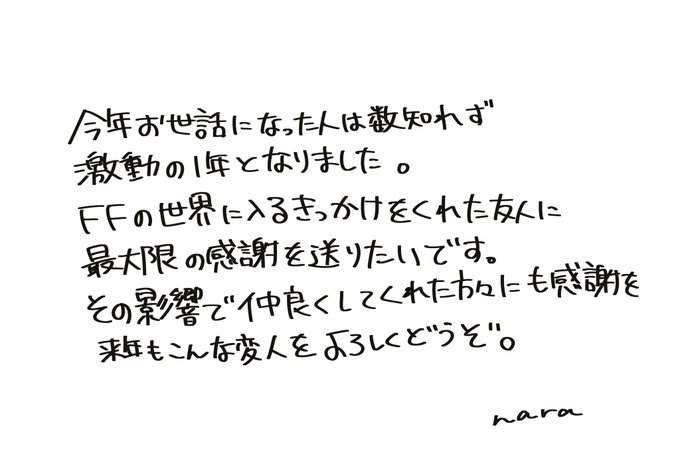 今年お世話になった人は数知れず
激動の1年となりました。
FFの世界に入るきっかけをくれた友人に
最大限の感謝を送りたいです。
その影響で仲良くしてくれた方々にも感謝を
来年もこんな変人をよろしくどうぞ。
nara